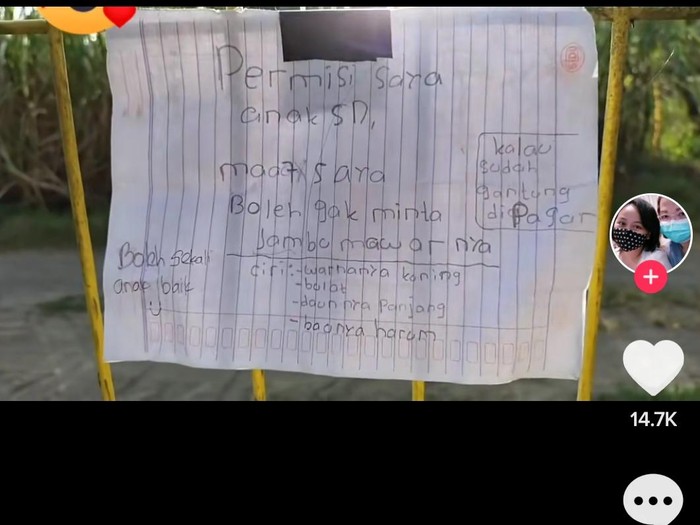 Permisi saya
anak SD,
maaf saya
Boleh gak minta
Jambu mawar nya
ciri:-warnanya koning
-bulat
-daun nya panjang
-baonya harum
kalau
sudah
gantung
di Pagar
Boleh sekali
anak baik
14.7K